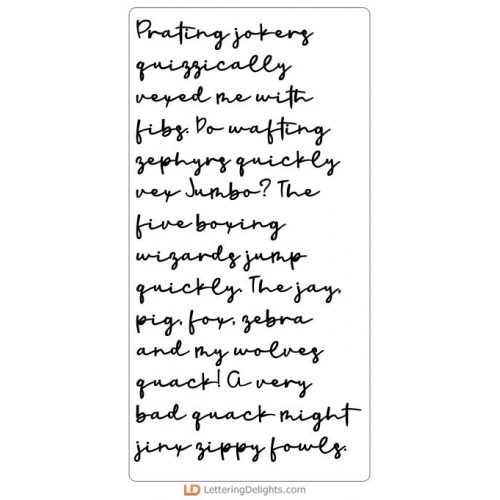 Prating jokers
quizzically
vexed me with
fibs. Do wafting
zephyrs quickly
vex Jumbo? The
five boxing
wizards jump
quickly. The jay,
pig, fox, zebra
and my wolves
quack! A very
bad quack might
jinx zippy fowls.
LD LetteringDelights.com